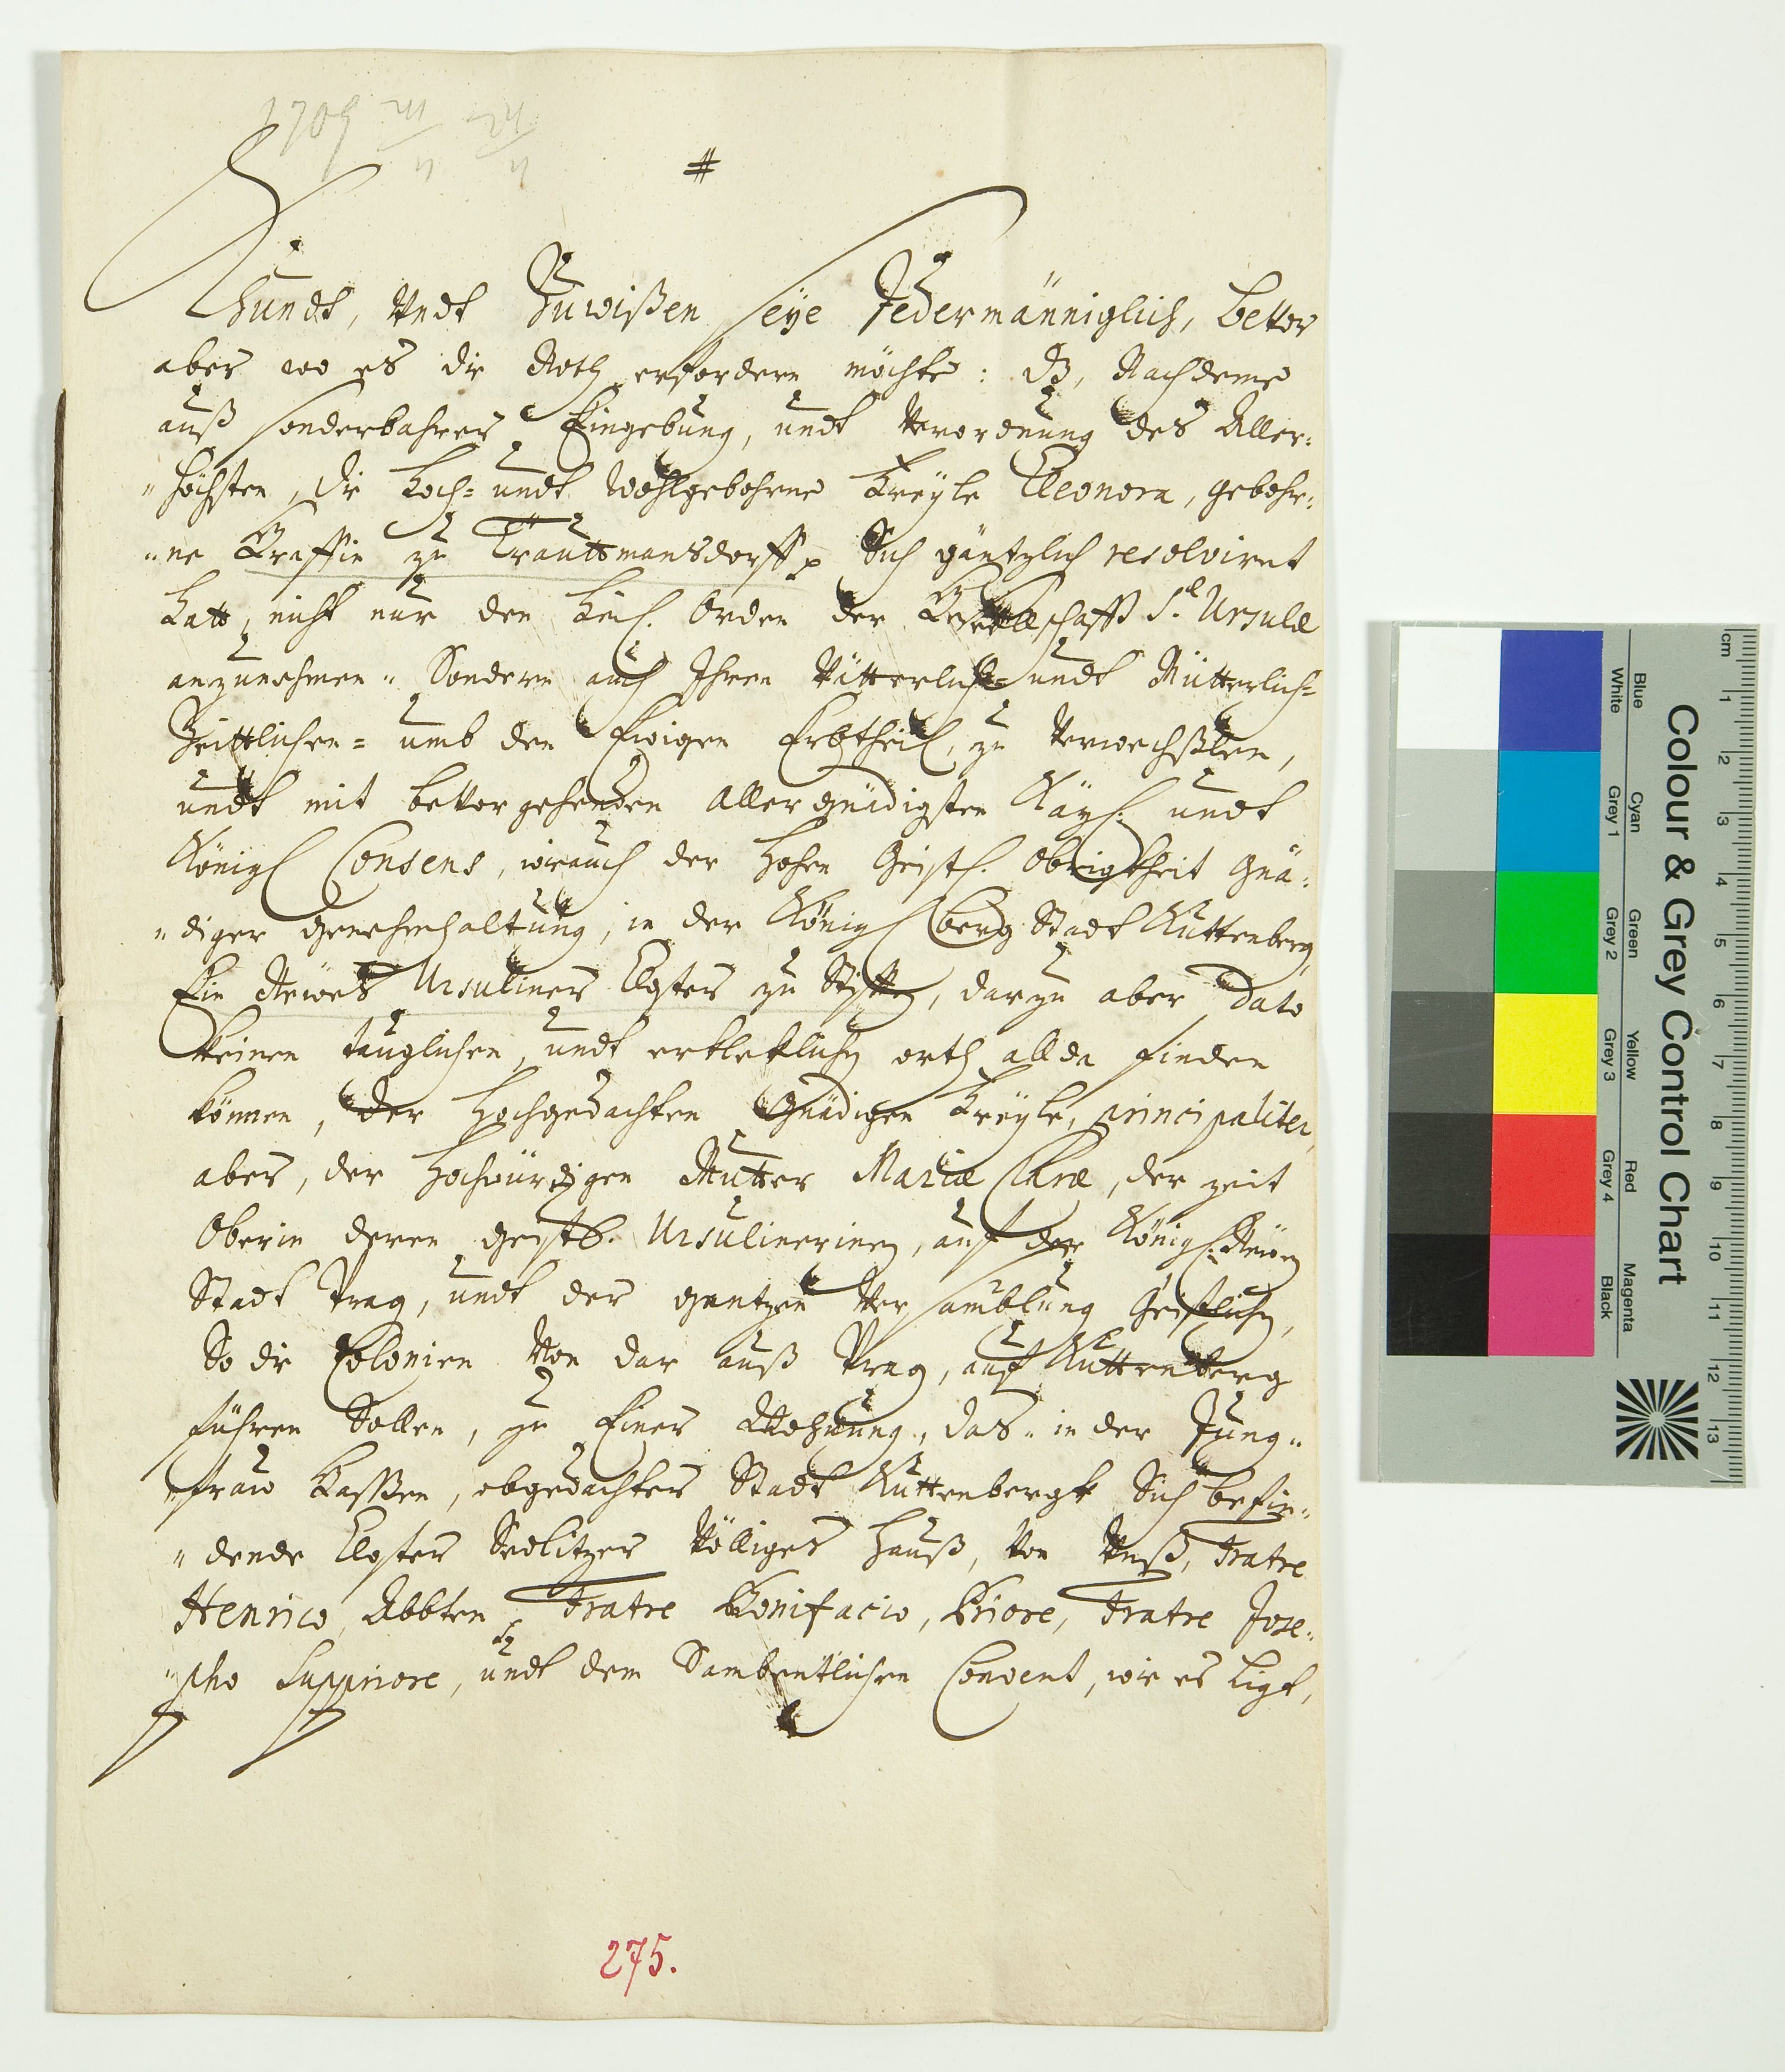 1709 24/11 24/11
#
Kundt, Undt Zuwißen seÿe Jedermänniglich, bevor
aber wo es die Noth erfordern möchte: dz, Nachdeme
auß sonderbahrer Eingebung, undt Verordnung des Aller¸
"höchsten, die Hoch= undt Wohlgebohrne Freÿle Eleonora, gebohr¸
"ne Gräffin zu Trauttmansdorff Sich gäntzlich resolviret
hatt, nicht nur den heil. Orden der Gesellschafft S.ae Ursulae
anzunehmen" Sondern auch Ihren Vätterlich= undt Mütterlich=
Zeittlichen= umb den Ewigen Erbtheil, zu Verwechßlen,
undt mit bevorgehenden allergnädigsten Kaÿl: undt
Königl Consens, wieauch der Hohen Geistl. Obrigkheit Gnä¸
"diger genehmhaltung, in der Königl Berg Stadt Kuttenberg
Ein Neües Ursuliner Closter zu Stifften, darzu aber dato
keinen tauglichen, undt erklecklichen orth allda finden
können, der Hochgedachten Gnädigen Freÿle, principaliter,
aber, der Hochwürdigen Mutter Mariae Clarae, der zeit
Oberin deren Geistl. Ursulinerinen, auf der Königl: Neüen
Stadt Prag, undt der gantzen Versamblung Geistlichen,
So die Colonien Von dar auß Prag, auf Kuttenberg
führen Sollen, zu Einer Wohnung, das" in der Jung"
"fraw Gaßßen, obgedachter Stadt Kuttenbergk Sich befin¸
"dende Closter Sedlitzer Völliges Hauß, Von Unß, Fratre
Henrico Abbten, Fratre Bonifacio, Priore, Fratre Jose¸
"pho Suppriore, undt dem Sambentlichen Convent, wie es ligt,
275.
Colour & Grey Control Chart
Blue Cyan Green Yellow Red Magenta
White Grey 1 Grey 2 Grey 3 Grey 4 Black
cm 1 2 3 4 5 6 7 8 9 10 11 12 13